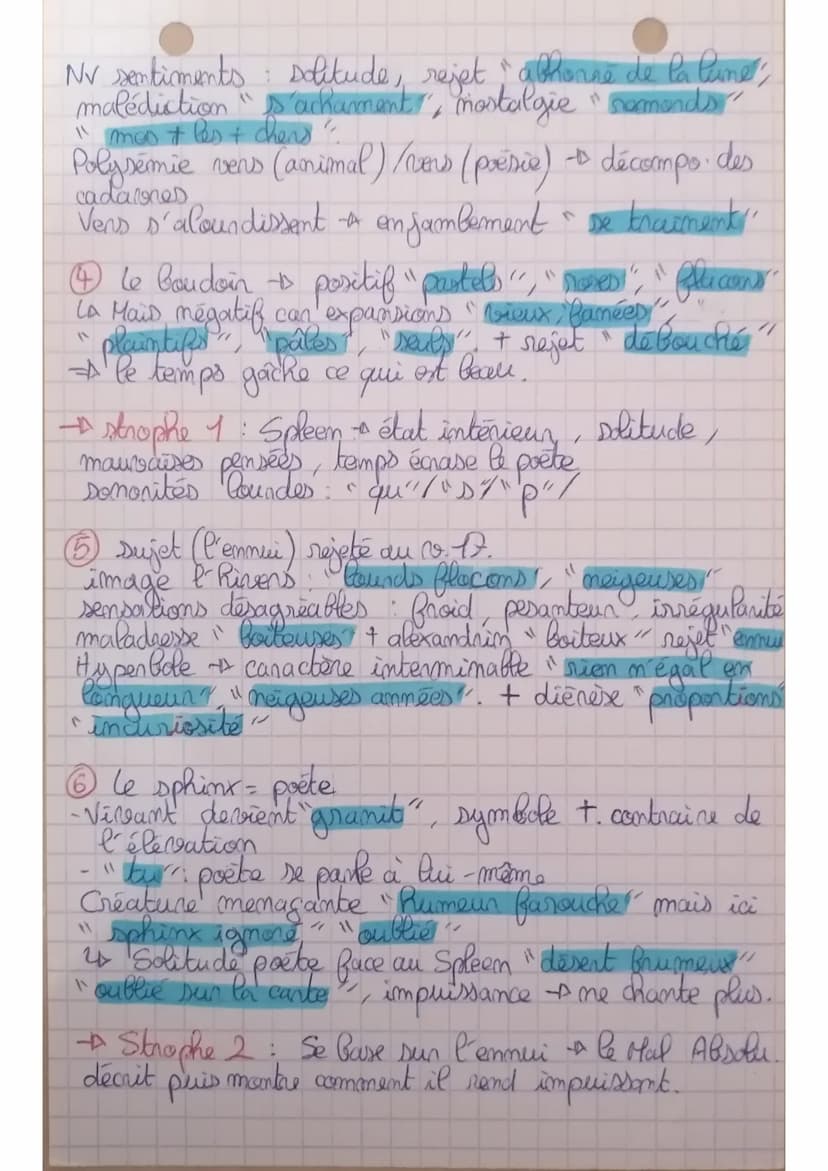 Nv sentiments : Solitude, rejet "abhorré de la lune",
malédiction "s'acharnent", nostalgie "remords"
"mes + les + chers".
Polysémie vers (animal) / vers (poésie) → décompo. des
cadavres
Vers s'alourdissent → enjambement "se traînent"
④ Le Boudoir → positif "pastels", "roses", "flacons"
↳ Mais négatif car expansions "vieux, fanées",
"plaintifs", "pâles", "seuls". + rejet "débouché"
⇒ le temps gâche ce qui est beau.
→ Strophe 1 : Spleen → état intérieur, solitude,
mauvaises pensées, temps écrase le poète
Sonorités lourdes : "qu"/"s"/"p"/
⑤ Sujet (l'ennui) rejeté au v. 17.
image l'hivers : "lourds flocons", "neigeuses"
sensations désagréables : froid, pesanteur, irrégularité
maladresse "boiteuses" + alexandrin "boiteux" rejet "ennui
Hyperbole → caractère interminable "rien n'égal en
longueur", "neigeuses années". + diérèse "proportions"
"incuriosité"
⑥ Le sphinx = poète
- Vivant devient "granit", symbole t. contraire de
l'élévation
- "tu" : poète se parle à lui-même
Créature menaçante "Humeur farouche" mais ici
"sphinx ignoré" "oublié"
↳ Solitude poète face au Spleen "désert brumeux"
"oublié sur la carte", impuissance → ne chante plus.
→ Strophe 2 : Se base sur l'ennui → le Mal Absolu.
décrit puis montre comment il rend impuissant.